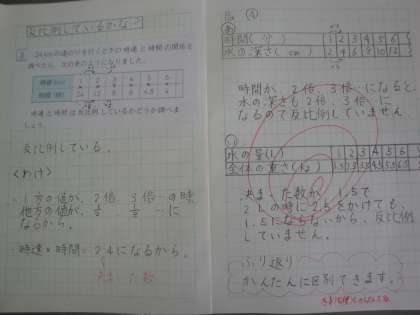 反比例しているかな？
24kmの道のりを行くときの時速と時間の関係を
調べたら、次の表のようになりました。
時速(km) 1 2 3 4 5 6
時間(時) 24 12 8 6 4.8 4
時速と時間は反比例しているかどうか調べま
しょう。
反比例している。
〈わけ〉
・1方の値が、2倍 3倍…の時、
他方の値が、1/2 1/3 …に
なるから。
・時速×時間=24になるから。
決まった数
時間(分) 1 2 3 4 5 6
水の深さ(cm) 2 4 6 8 10 12
時間が、2倍、3倍…になると、
水の深さも2倍、3倍…に
なるので反比例していません。
水の量(L) 1 2 3 4 5 6
全体の重さ(kg)
決まった数が、1.5で
2Lの時に2.5をかけても、
1.5にならないから、反比例
していません。
ふり返り
かんたんに区別できます。